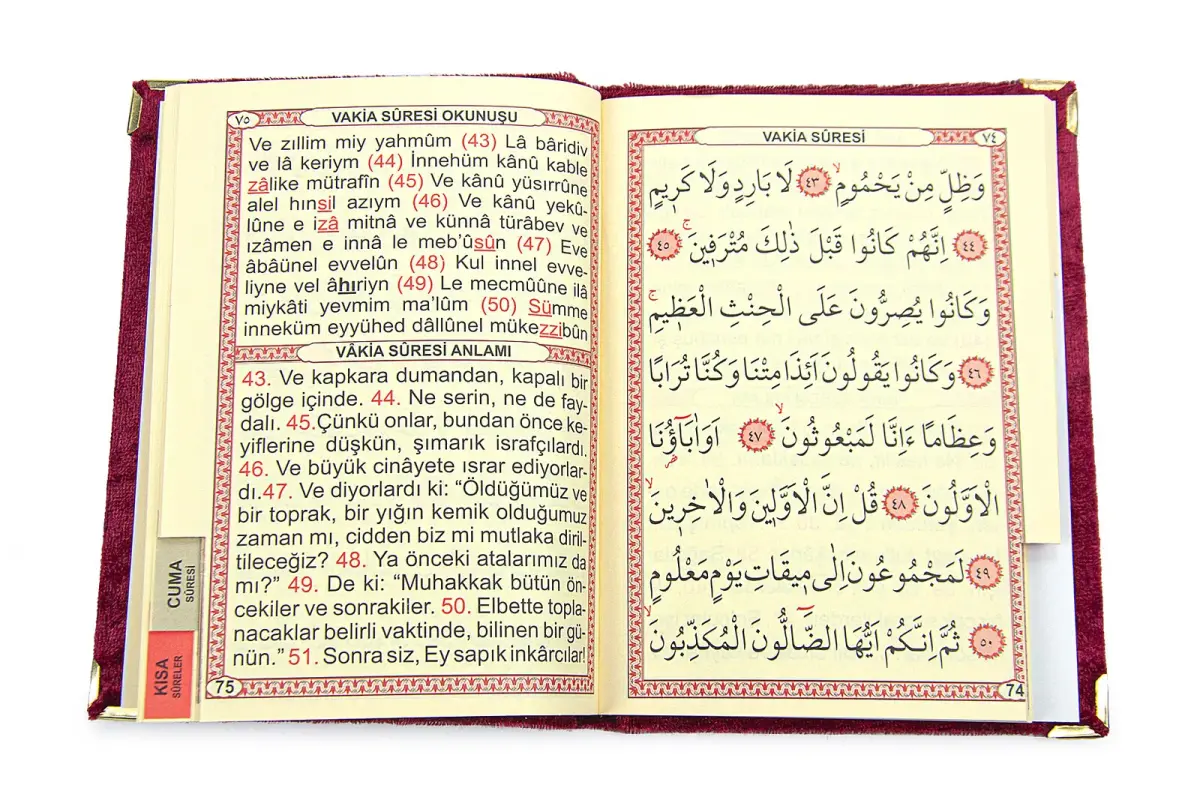 VAKİA SÛRESİ
٧٤
وَظِلٍّ مِنْ يَحْمُومٍ ﴿٤٣﴾ لَا بَارِدٍ وَلَا كَرِيمٍ
﴿٤٤﴾ اِنَّهُمْ كَانُوا قَبْلَ ذٰلِكَ مُتْرَفِينَ ﴿٤٥﴾
وَكَانُوا يُصِرُّونَ عَلَى الْحِنْثِ الْعَظِيمِ
﴿٤٦﴾ وَكَانُوا يَقُولُونَ اَئِذَا مِتْنَا وَكُنَّا تُرَابًا
وَعِظَامًا ءَاِنَّا لَمَبْعُوثُونَ ﴿٤٧﴾ اَوَاٰبَٓاؤُنَا
الْاَوَّلُونَ ﴿٤٨﴾ قُلْ اِنَّ الْاَوَّلِينَ وَالْاٰخِرِينَ
﴿٤٩﴾ لَمَجْمُوعُونَ اِلٰى مِيقَاتِ يَوْمٍ مَعْلُومٍ
﴿٥٠﴾ ثُمَّ اِنَّكُمْ اَيُّهَا الضَّٓالُّونَ الْمُكَذِّبُونَ
74
٧٥
VAKİA SÛRESİ OKUNUŞU
Ve zıllim miy yahmûm (43) Lâ bâridiv
ve lâ keriym (44) İnnehüm kânû kable
zâlike mütrafîn (45) Ve kânû yüsırrûne
alel hınsil azıym (46) Ve kânû yekû-
lûne e izâ mitnâ ve künnâ türâbev ve
ızâmen e innâ le meb’ûsûn (47) Eve
âbâünel evvelûn (48) Kul innel evve-
liyne vel âhıriyn (49) Le mecmûûne ilâ
miykâti yevmim ma’lûm (50) Sümme
inneküm eyyühed dâllûnel mükezzibûn
VÂKİA SÛRESİ ANLAMI
43. Ve kapkara dumandan, kapalı bir
gölge içinde. 44. Ne serin, ne de fay-
dalı. 45.Çünkü onlar, bundan önce ke-
yiflerine düşkün, şımarık israfçılardı.
46. Ve büyük cinâyete ısrar ediyorlar-
dı.47. Ve diyorlardı ki: “Öldüğümüz ve
bir toprak, bir yığın kemik olduğumuz
zaman mı, cidden biz mi mutlaka diril-
tileceğiz? 48. Ya önceki atalarımız da
mı?” 49. De ki: “Muhakkak bütün ön-
cekiler ve sonrakiler. 50. Elbette topla-
nacaklar belirli vaktinde, bilinen bir gü-
nün.” 51. Sonra siz, Ey sapık inkârcılar!
75
CUMA
SÛRESİ
KISA
SÛRELER